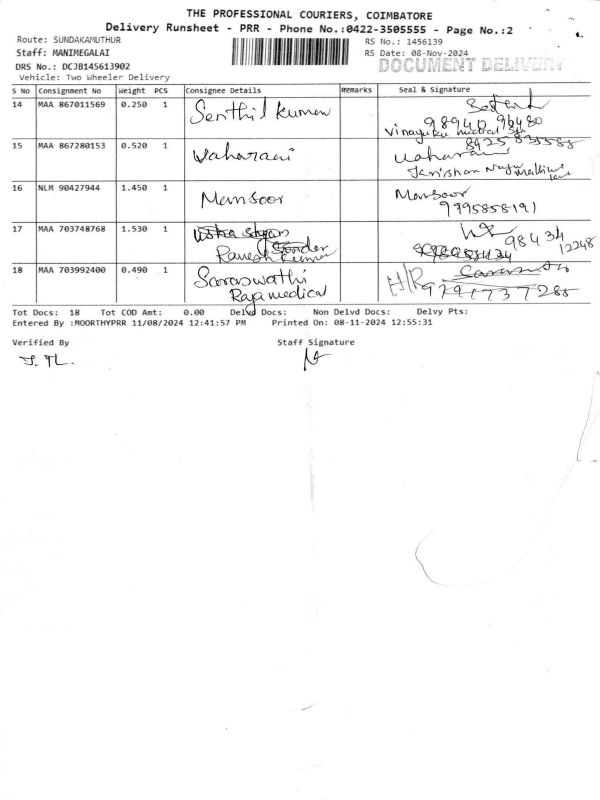 THE PROFESSIONAL COURIERS, COIMBATORE
Delivery Runsheet - PRR - Phone No.:0422-3505555 - Page No.:2
Route: SUNDAKAMUTHUR
RS No.: 1456139
Staff: MANIMEGALAI
RS Date: 08-Nov-2024
DRS No.: DCJB145613902
DOCUMENT DELIVERY
Vehicle: Two Wheeler Delivery
S No Consignment No Weight PCS Consignee Details Remarks Seal & Signature
14 MAA 867011569 0.250 1 Senthil kumar
98940 96480
Vinayaka medical
15 MAA 867280153 0.520 1 Maharani
8925835585
Maharani
Krishan
16 NLM 90427944 1.450 1 Mansoor Mansoor
9995858191
17 MAA 703748768 1.530 1
98434
12248
Ramesh kumar
18 MAA 703992400 0.490 1 Saraswathi H/R
Raja medical 9791737285
Tot Docs: 18 Tot COD Amt: 0.00 Delvd Docs: Non Delvd Docs: Delvy Pts:
Entered By :MOORTHYPRR 11/08/2024 12:41:57 PM Printed On: 08-11-2024 12:55:31
Verified By Staff Signature